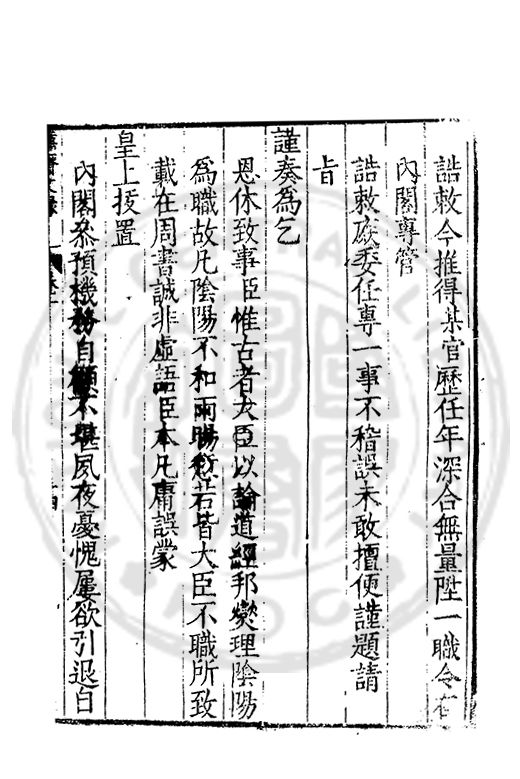 誥敕今推得某官歷任年深合無量陞一職令在
內閣專管
誥敕庶委任專一事不稽誤未敢擅便謹題請
旨
謹奏為乞
恩休致事臣惟古者大臣以論道經邦燮理陰陽
為職故凡陰陽不和雨暘愆若皆大臣不職所致
載在周書誠非虛語臣本凡庸誤蒙
皇上擢置
內閣叅預機務自顧不堪夙夜憂愧屢欲引退自